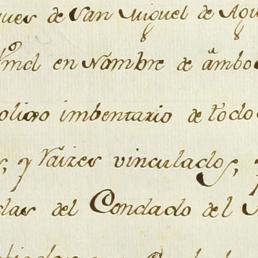 ques de San Miguel de Agu
Ymo^l en Nombre de ambo
olicio imbentario de todo
s, y Raizes vinculados, y
das del Condado del